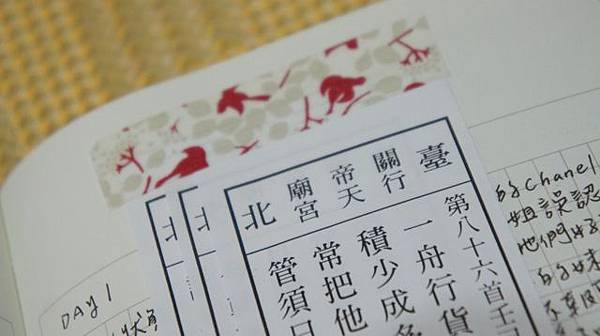 臺
關帝廟
行天宮
北
第八十六首壬
一舟行貨
積少成
常把他
管須
北
北
DAY 1
的Chanel
姐誤認
他們好